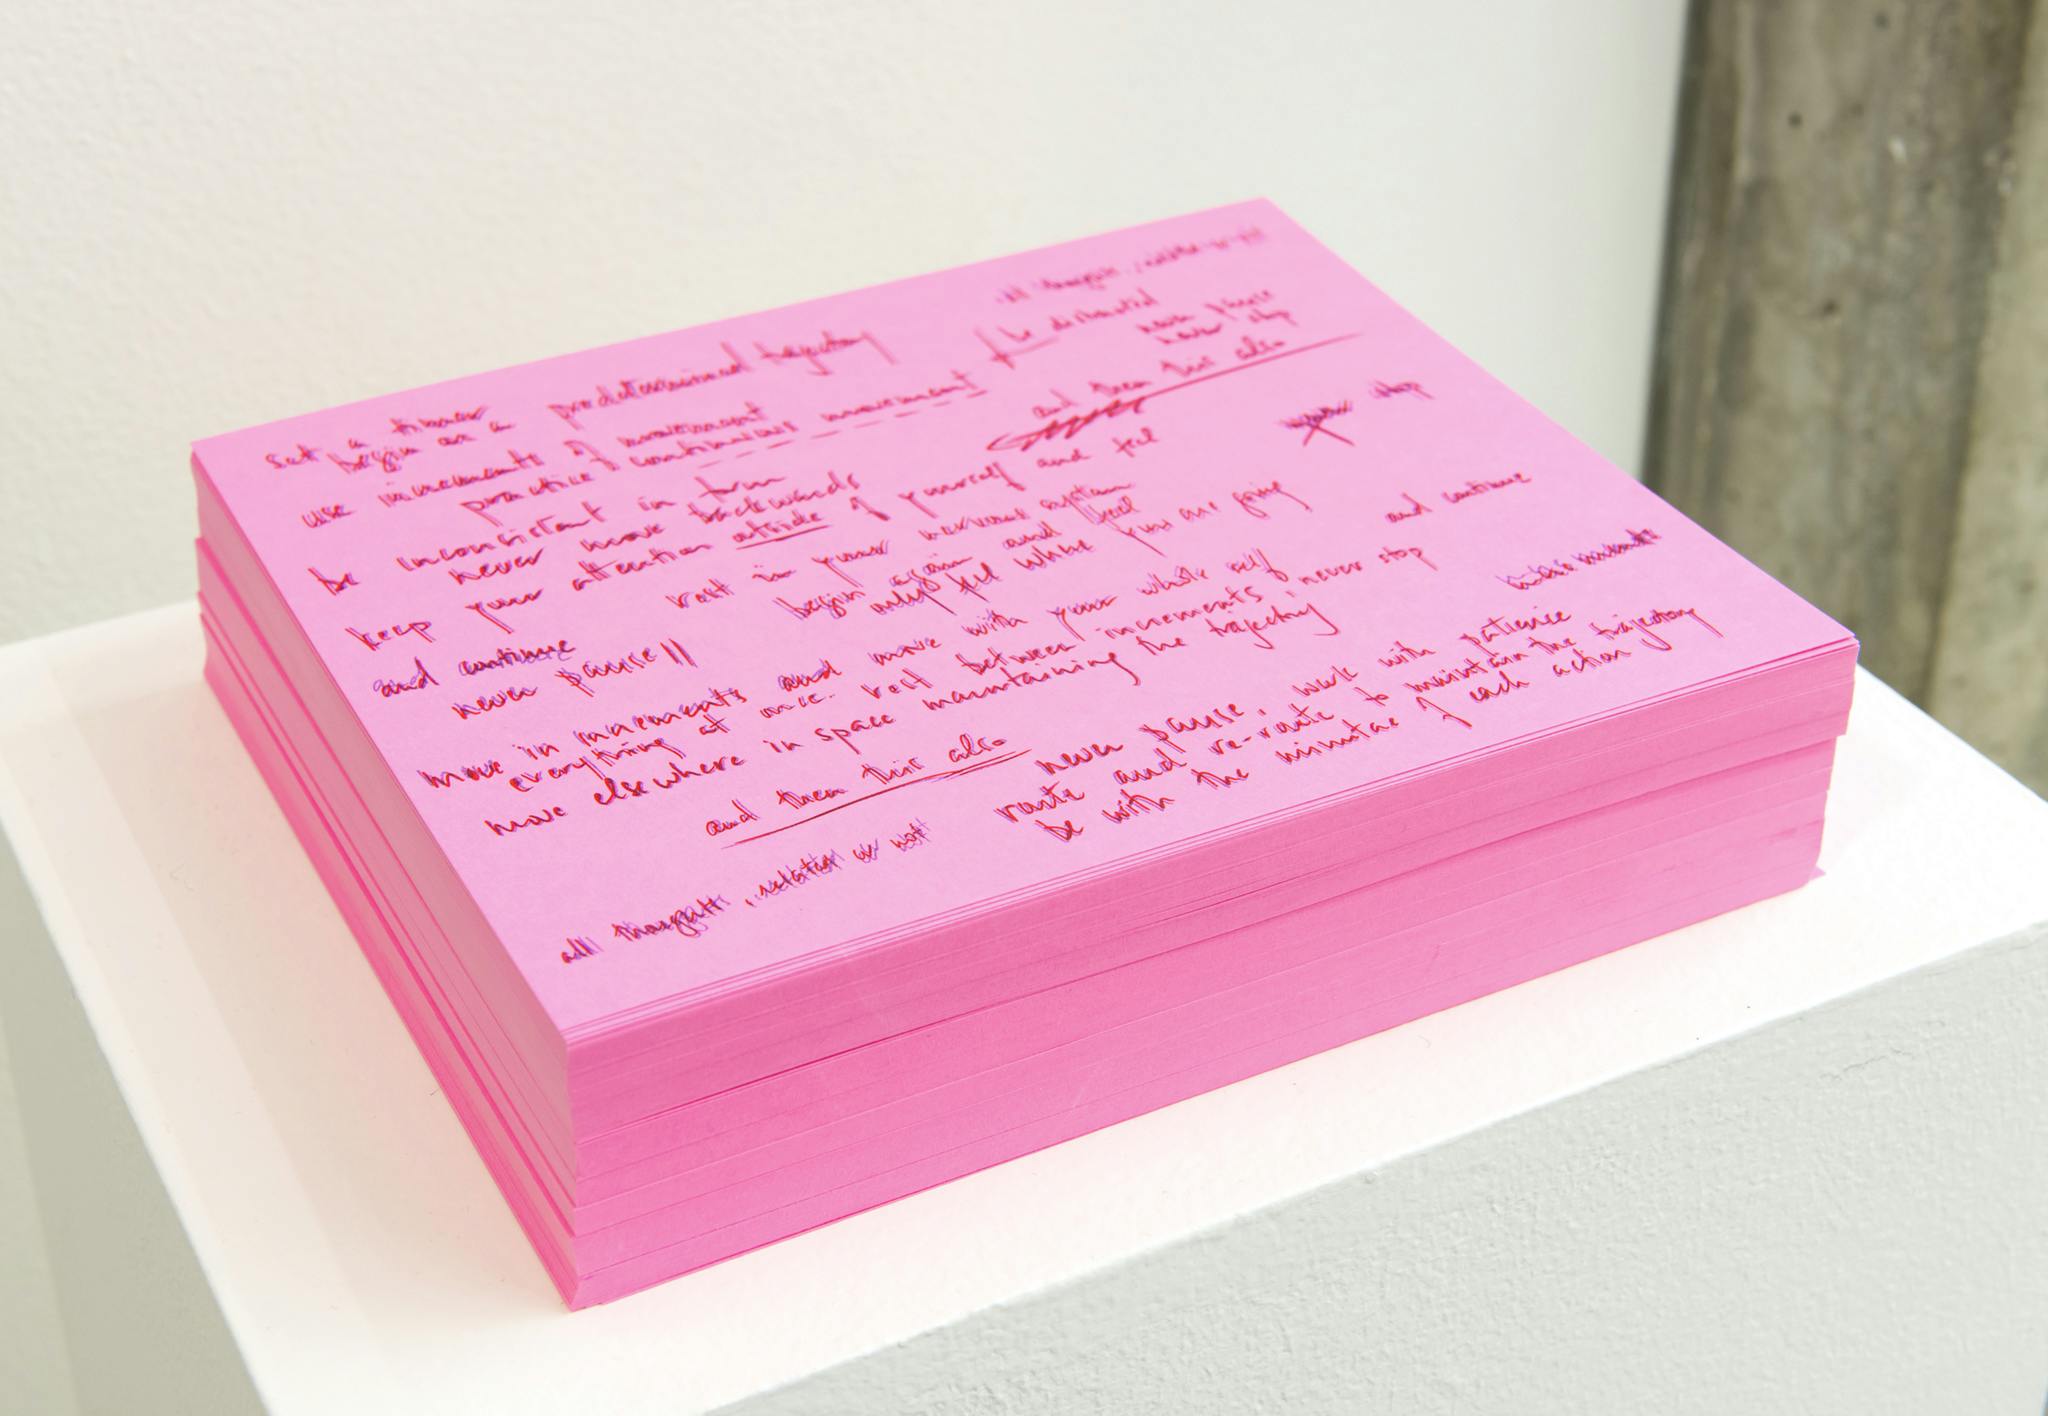 all thoughts,
set a timer
begin on a predetermined trajectory
be distracted
never pause
never stop
use increments of movement
practice continuous movement
and then this also
be inconsistent in form
never move backwards
stop
keep your attention outside of yourself and feel
rest in your nervous system
and continue
begin again and feel
only feel where you are going
and continue
never pause
move in increments and move with your whole self
everything at once. rest between increments, never stop
move elsewhere in space maintaining the trajectory
and then this also
never pause, work with patience
route and re-route to maintain the trajectory
be with the minutae of each action
all thoughts, related or not